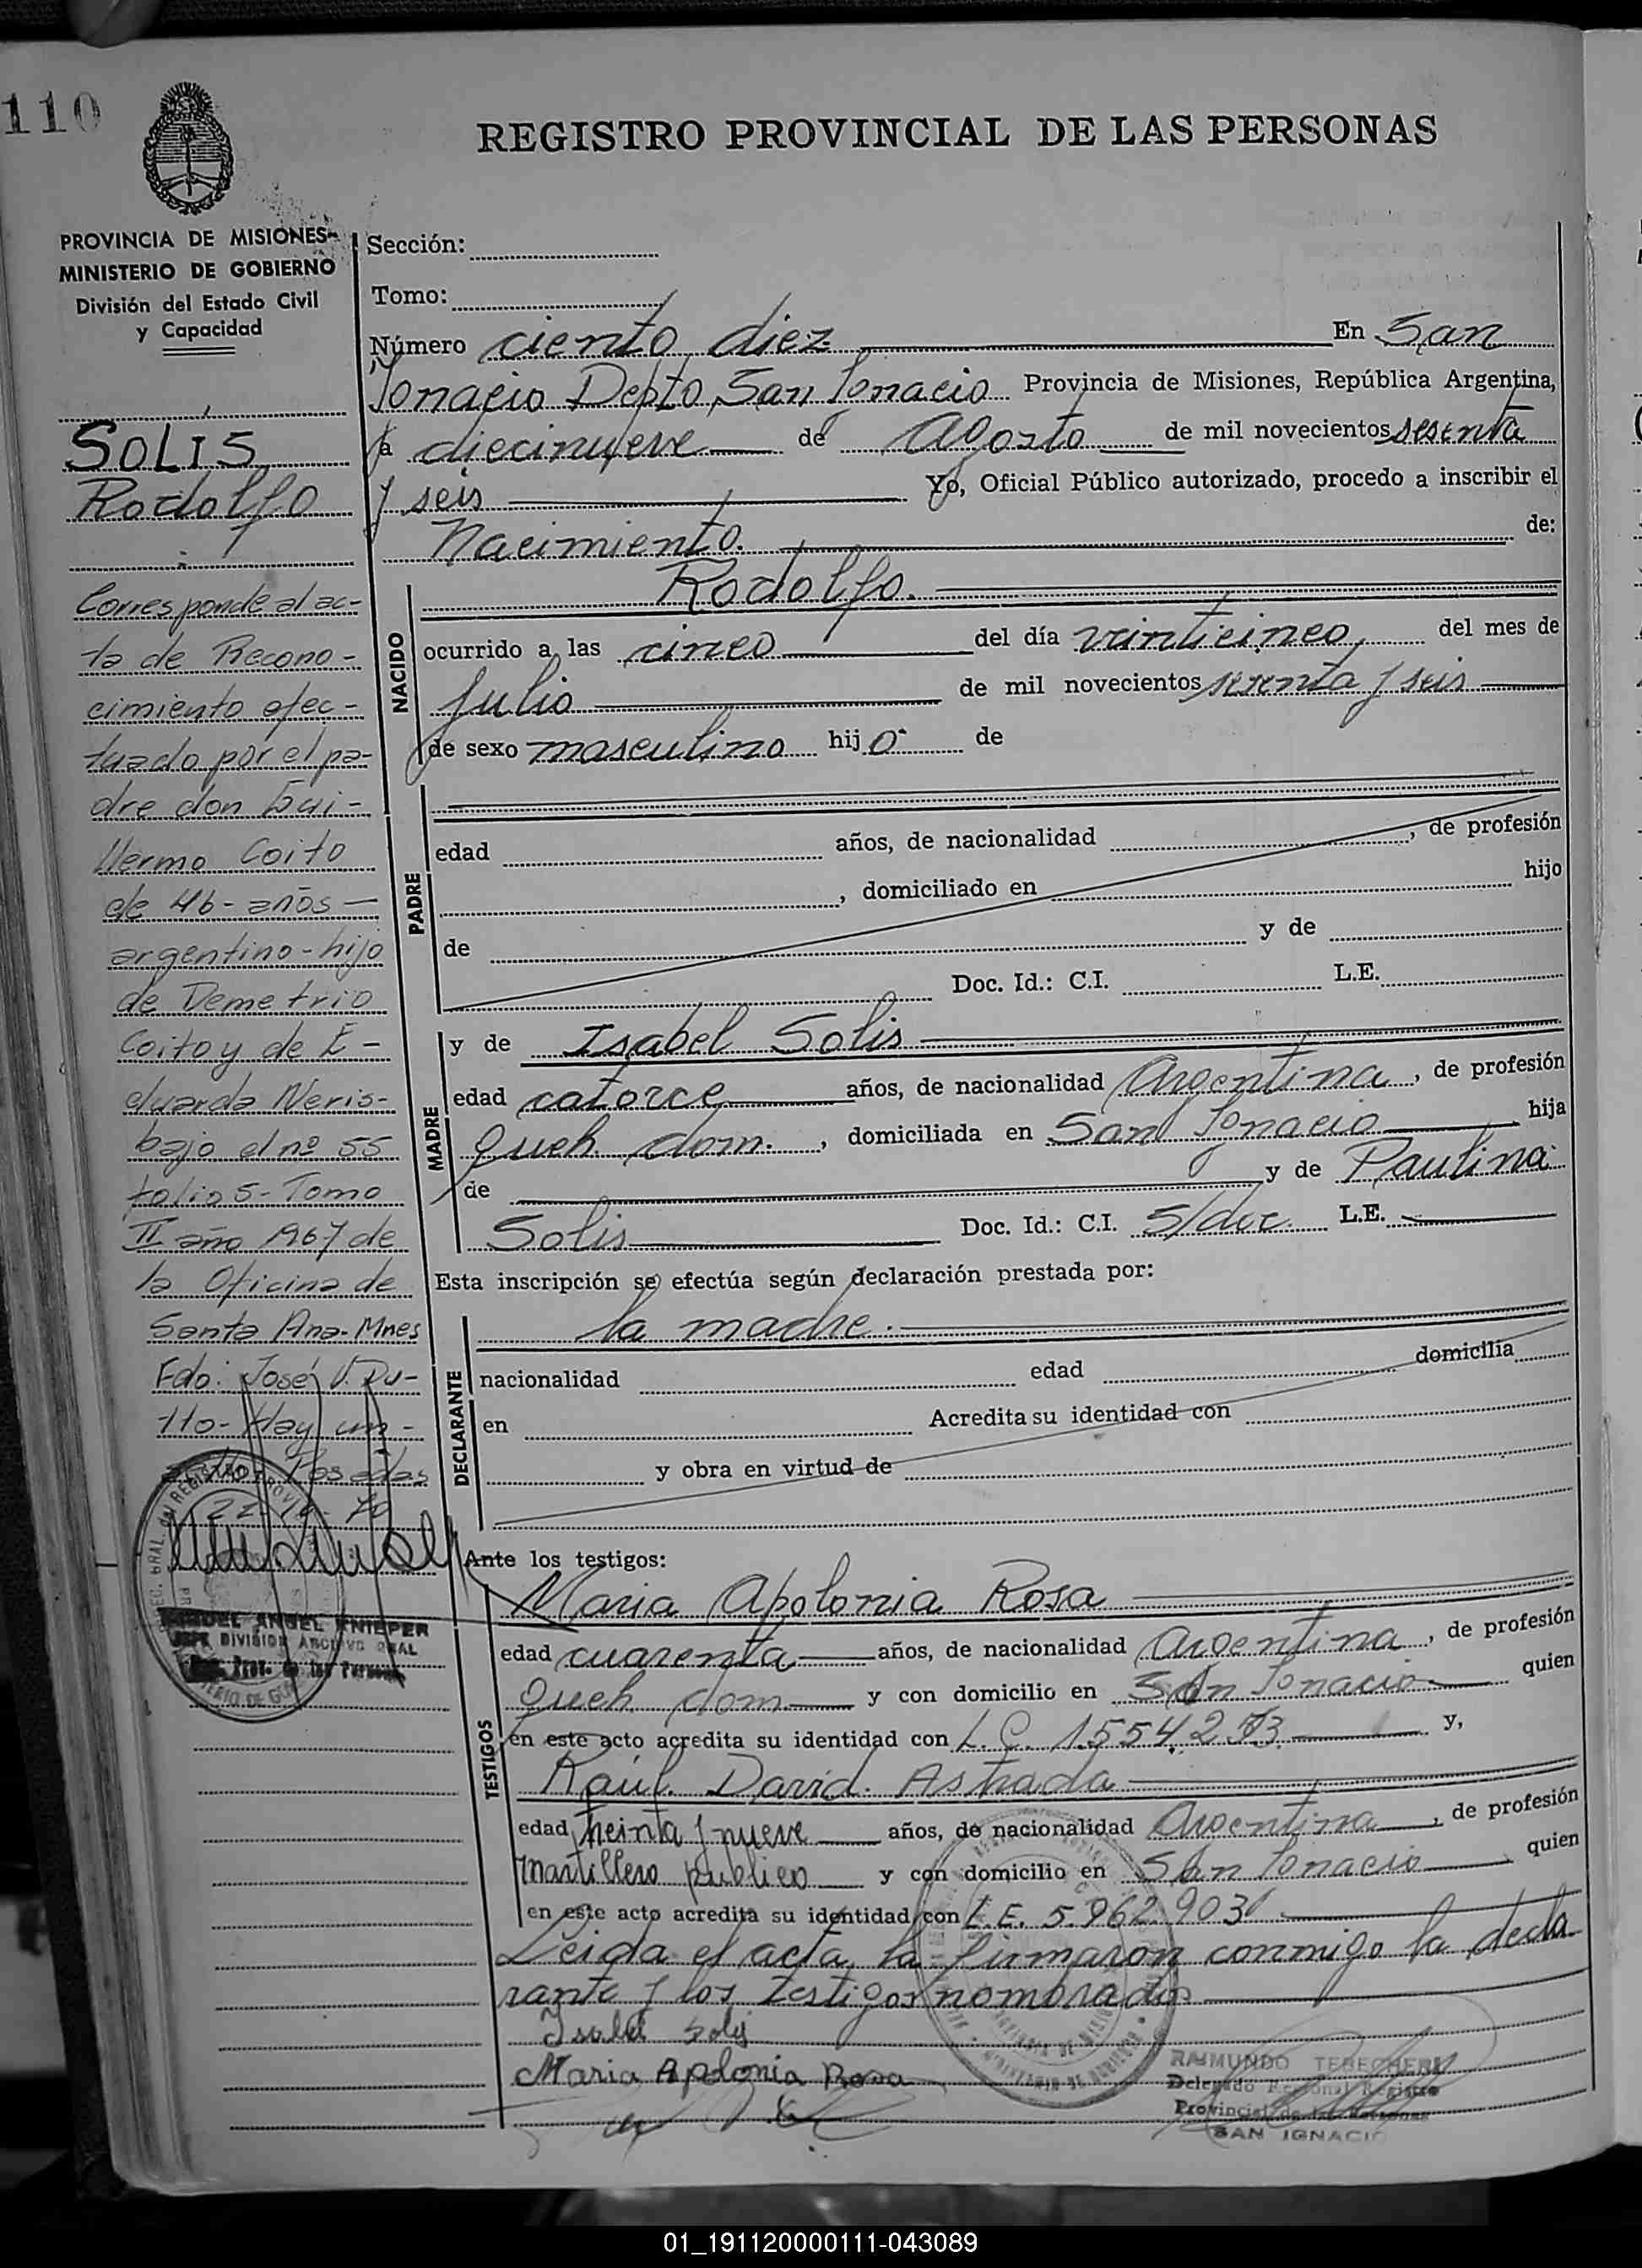 110
REGISTRO PROVINCIAL DE LAS PERSONAS
PROVINCIA DE MISIONES
MINISTERIO DE GOBIERNO
División del Estado Civil
y Capacidad
SOLIS
Rodolfo
Corresponde al ac-
ta de Recono-
cimiento efec-
tuado por el pa-
dre don Gui-
llermo Coito
de 46- años -
argentino - hijo
de Demetrio
Coito y de E-
duarda Neris-
bajo el nº 55
folio 5- Tomo
II año 1967 de
la Oficina de
Santa Ana- Mnes
Fdo: José V. Du-
tto- Hay un-
Posadas
JEFE DIVISION ARCHIVO GRAL
Sección:
Tomo:
Número ciento diez En San
Ignacio Depto San Ignacio Provincia de Misiones, República Argentina,
a diecinueve de Agosto de mil novecientos sesenta
y seis Yo, Oficial Público autorizado, procedo a inscribir el
Nacimiento. de:
NACIDO
Rodolfo.
ocurrido a las cinco del día veinticinco, del mes de
Julio de mil novecientos sesenta y seis
de sexo masculino hijo de
PADRE
edad años, de nacionalidad , de profesión
, domiciliado en hijo
de y de
Doc. Id.: C.I. L.E.
MADRE
y de Isabel Solis
edad catorce años, de nacionalidad Argentina, de profesión
Queh. dom. , domiciliada en San Ignacio hija
de y de Paulina
Solis Doc. Id.: C.I. S/doc L.E.
Esta inscripción se efectúa según declaración prestada por:
DECLARANTE
la madre.
nacionalidad edad domicilia
en Acredita su identidad con
y obra en virtud de
Ante los testigos:
TESTIGOS
Maria Apolonia Rosa
edad cuarenta años, de nacionalidad Argentina, de profesión
Queh. dom. y con domicilio en San Ignacio quien
en este acto acredita su identidad con L.C. y,
Raúl David Astrada
edad treinta y nueve años, de nacionalidad Argentina, de profesión
martillero publico y con domicilio en San Ignacio quien
en este acto acredita su identidad con L.E. 5.962.903
Leida el acta, la firmaron conmigo la decla
rante y los testigos nombrados
Isabel Solis
Maria Apolonia Rosa
RAIMUNDO TEBECHERI
Delegado Regional Registro
Provincial de las Personas
SAN IGNACIO
01_191120000111-043089